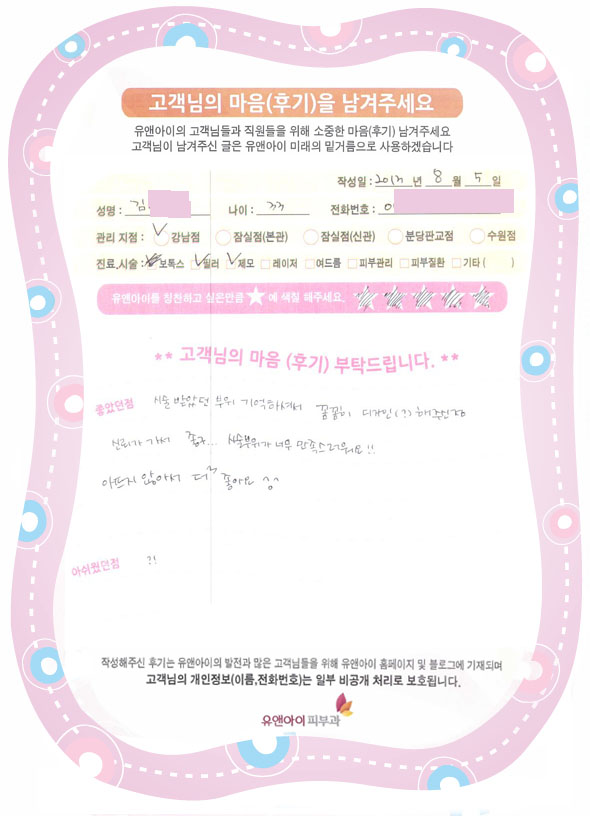 고객님의 마음(후기)을 남겨주세요
유앤아이의 고객님들과 직원들을 위해 소중한 마음(후기) 남겨주세요
고객님이 남겨주신 글은 유앤아이 미래의 밑거름으로 사용하겠습니다
작성일 : 2013 년 8 월 5 일
성명 : 김 나이 : 33 전화번호 : 0
관리 지점 : 강남점 잠실점(본관) 잠실점(신관) 분당판교점 수원점
진료.시술 : 보톡스 필러 제모 레이저 여드름 피부관리 피부질환 기타 ( )
유앤아이를 칭찬하고 싶은만큼 ★ 에 색칠 해주세요.
** 고객님의 마음 (후기) 부탁드립니다. **
좋았던점 시술 받았던 부위 기억하셔서 꼼꼼히 디자인(?) 해주신점
신뢰가 가서 좋고... 시술부위가 너무 만족스러워요!!
아프지 않아서 더 좋아요 ^^
아쉬웠던점 ?!
작성해주신 후기는 유앤아이의 발전과 많은 고객님들을 위해 유앤아이 홈페이지 및 블로그에 기재되며
고객님의 개인정보(이름,전화번호)는 일부 비공개 처리로 보호됩니다.
유앤아이피부과